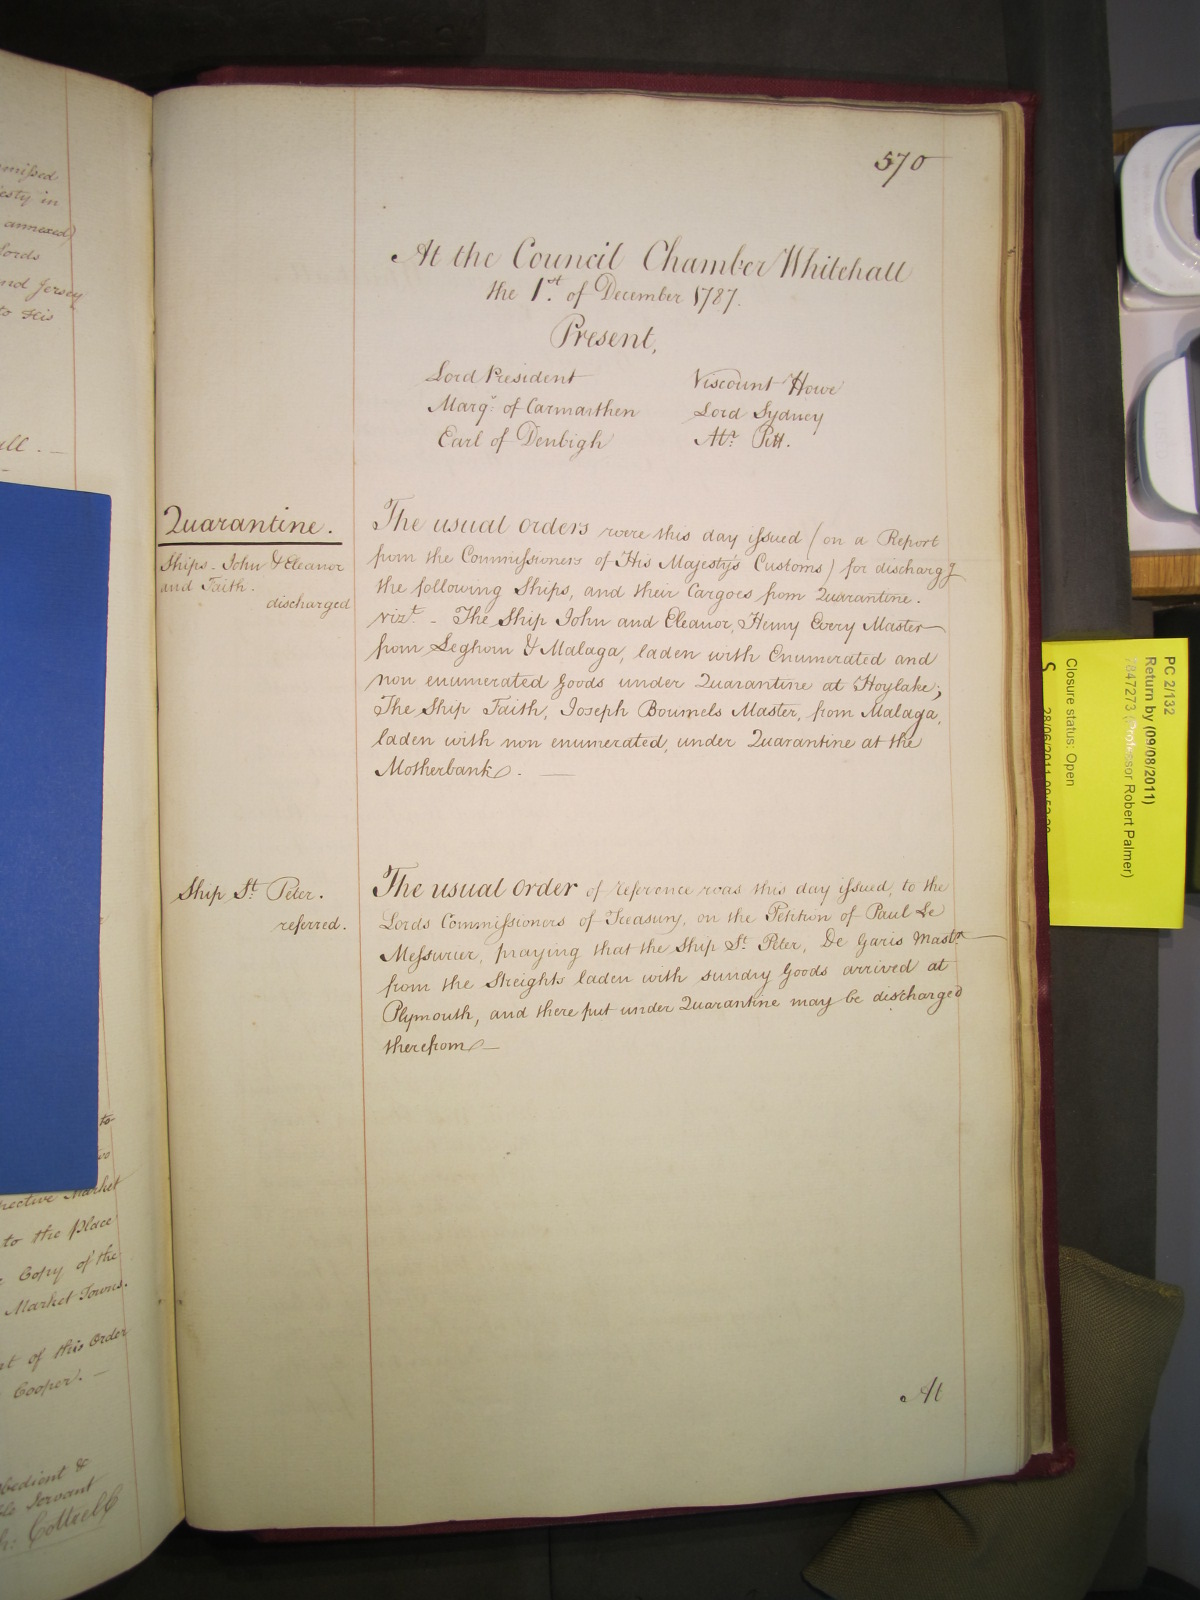 mifsed
esty in
annexed)
Lords
and Jersey
to His
ull. —
to
pective Market
to the Place
Copy of the
Market Towns.
nt of this Order
Cooper. —
bedient &
ble Servant
570
At the Council Chamber Whitehall
the 1.st of December 1787.
Present,
Lord President Viscount Howe
Marq.s of Carmarthen Lord Sydney
Earl of Denbigh Mr. Pitt.
Quarantine.
Ships - John & Eleanor
and Faith.
discharged
The usual orders were this day ifsued (on a Report
from the Commifsioners of His Majesty's Customs) for discharg.g
the following Ships, and their Cargoes from Quarantine.
vizt. - The Ship John and Eleanor, Henry Every Master
from Leghorn & Malaga, laden with Enumerated and
non enumerated Goods under Quarantine at Hoylake;
The Ship Faith, Joseph Boumels Master, from Malaga,
laden with non enumerated, under Quarantine at the
Motherbank. —
Ship St. Peter.
referred.
The usual Order of reference was this day ifsued, to the
Lords Commifsioners of Treasury, on the Petition of Paul Le
Mefsurier, praying that the Ship St. Peter, De Garis Mastr.
from the Streights laden with sundry Goods arrived at
Plymouth, and there put under Quarantine may be discharged
therefrom —
At
PC 2/132
Return by (09/08/2011)
7847273 (Professor Robert Palmer)
Closure status: Open
S